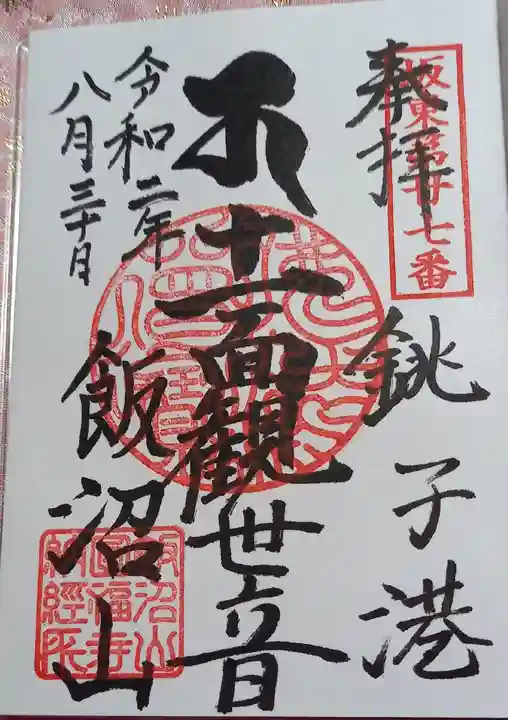 坂東第廿七番
奉拝
銚子港
本十一面観世音
飯沼山
令和二年
八月三十日
飯沼山
圓福寺
納經所